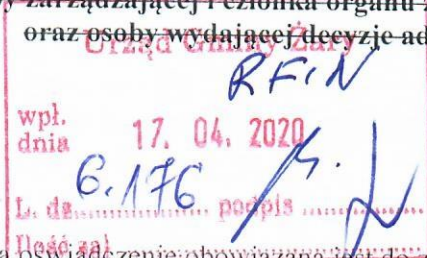 zarządzającej i członka organu
oraz osoby wydającej decyzje ad
Urząd Gminy Żary
RFiN
wpł.
dnia 17. 04. 2020
6.176
L. dz. podpis
Ilość zał.
oświadczenie obowiązana jest do